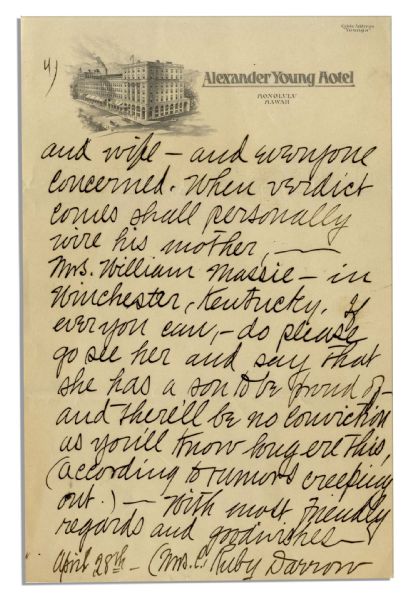 Cable Address
"Younght"
4)
Alexander Young Hotel
HONOLULU
HAWAII
and wife – and everyone
concerned. When verdict
comes shall personally
wire his mother, —
Mrs. William Massie – in
Winchester, Kentucky. If
ever you can, – do please
go see her and say that
she has a son to be proud of –
and there'll be no conviction
as you'll know long ere this,
(according to rumors creeping
out.) – With most friendly
regards and goodwishes –
April 28th – (Mrs. C.) Ruby Darrow